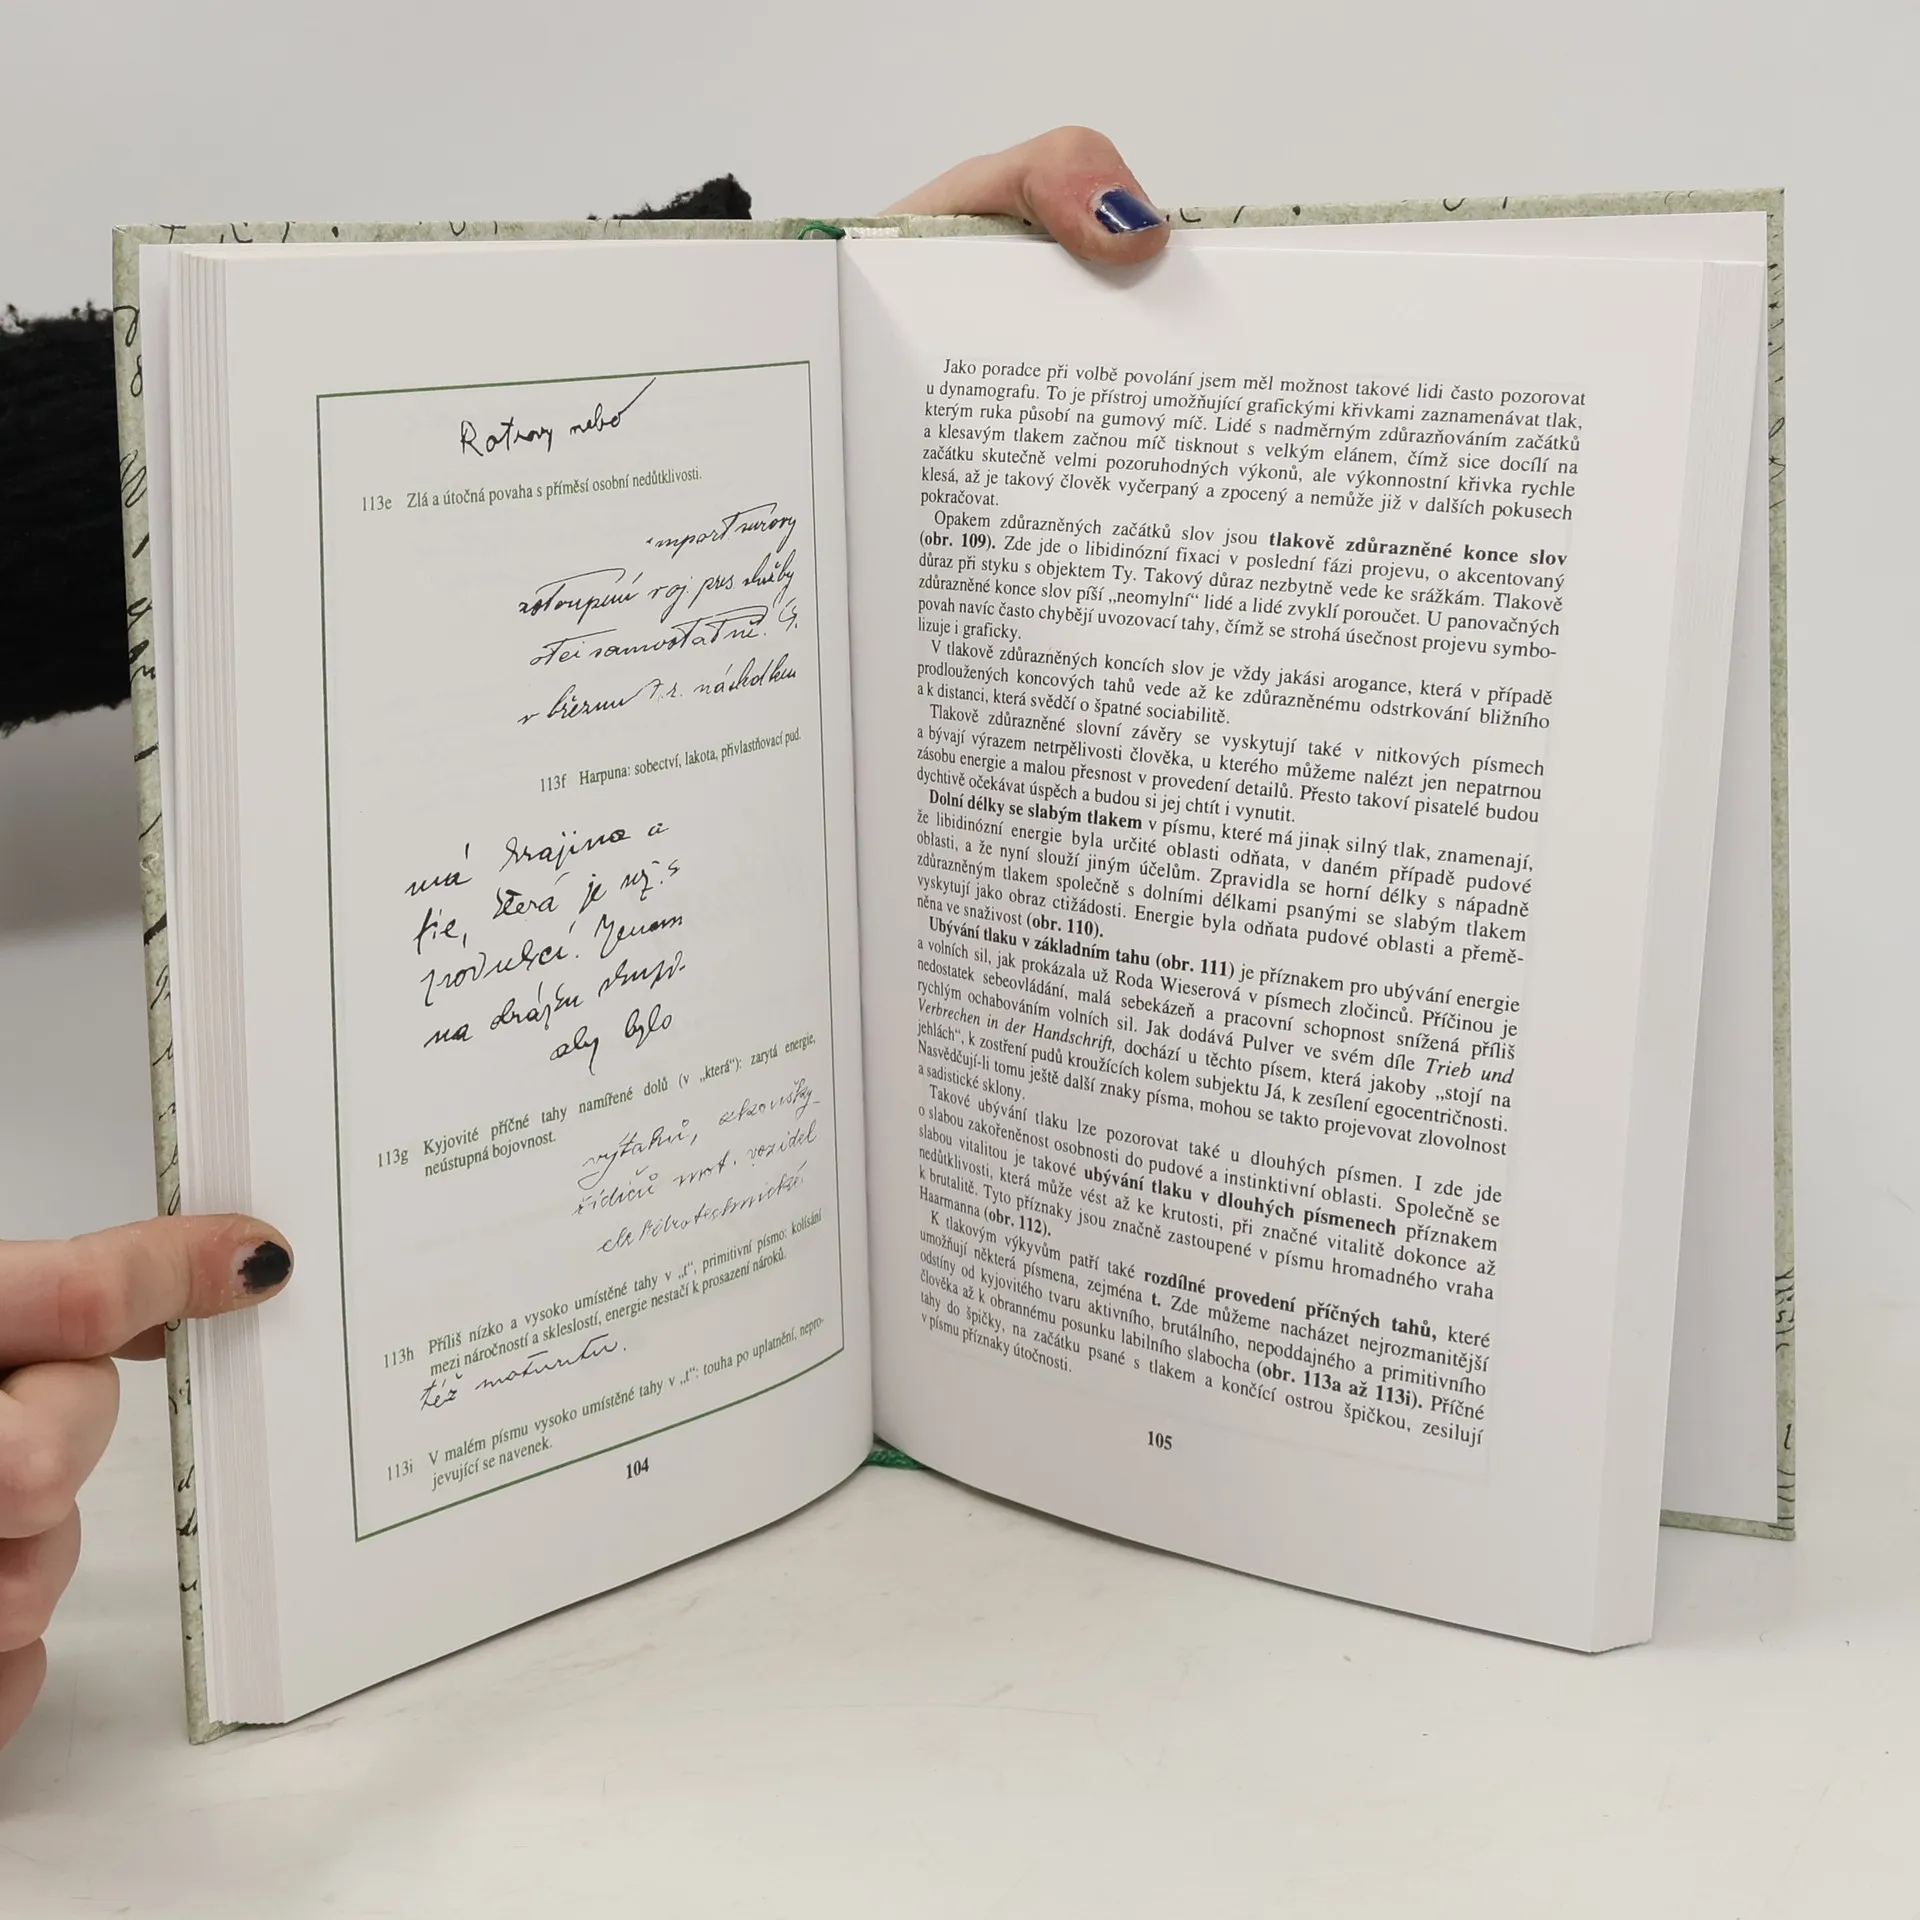 Rotrovy nebo
113e Zlá a útočná povaha s příměsí osobní nedůtklivosti.
import surovy
zstoupení roj. pres. služby
otei samostatně. Č.
v březnu t.r. následkem
113f Harpuna: sobectví, lakota, přivlastňovací pud.
má krajina a
fie, která je něj. s
produkcí. Jenom
na obrázku
aby bylo
113g Kyjovité příčné tahy namířené dolů (v „která“): zarytá energie,
neústupná bojovnost.
výtahů,
řidičů mot. vozidel
elektrotechnické.
113h Příliš nízko a vysoko umístěné tahy v „t“, primitivní písmo: kolísání
mezi náročností a skleslostí, energie nestačí k prosazení nároků.
též maturitu.
113i V malém písmu vysoko umístěné tahy v „t“: touha po uplatnění, nepro-
jevující se navenek.
104
Jako poradce při volbě povolání jsem měl možnost takové lidi často pozorovat
u dynamografu. To je přístroj umožňující grafickými křivkami zaznamenávat tlak,
kterým ruka působí na gumový míč. Lidé s nadměrným zdůrazňováním začátků
a klesavým tlakem začnou míč tisknout s velkým elánem, čímž sice docílí na
začátku skutečně velmi pozoruhodných výkonů, ale výkonnostní křivka rychle
klesá, až je takový člověk vyčerpaný a zpocený a nemůže již v dalších pokusech
pokračovat.
Opakem zdůrazněných začátků slov jsou tlakově zdůrazněné konce slov
(obr. 109). Zde jde o libidinózní fixaci v poslední fázi projevu, o akcentovaný
důraz při styku s objektem Ty. Takový důraz nezbytně vede ke srážkám. Tlakově
zdůrazněné konce slov píší „neomylní“ lidé a lidé zvyklí poroučet. U panovačných
povah navíc často chybějí uvozovací tahy, čímž se strohá úsečnost projevu symbo-
lizuje i graficky.
V tlakově zdůrazněných koncích slov je vždy jakási arogance, která v případě
prodloužených koncových tahů vede až ke zdůrazněnému odstrkování bližního
a k distanci, která svědčí o špatné sociabilitě.
Tlakově zdůrazněné slovní závěry se vyskytují také v nitkových písmech
a bývají výrazem netrpělivosti člověka, u kterého můžeme nalézt jen nepatrnou
zásobu energie a malou přesnost v provedení detailů. Přesto takoví pisatelé budou
dychtivě očekávat úspěch a budou si jej chtít i vynutit.
Dolní délky se slabým tlakem v písmu, které má jinak silný tlak, znamenají,
že libidinózní energie byla určité oblasti odňata, v daném případě pudové
oblasti, a že nyní slouží jiným účelům. Zpravidla se horní délky s nápadně
zdůrazněným tlakem společně s dolními délkami psanými se slabým tlakem
vyskytují jako obraz ctižádosti. Energie byla odňata pudové oblasti a přemě-
něna ve snaživost (obr. 110).
Ubývání tlaku v základním tahu (obr. 111) je příznakem pro ubývání energie
a volních sil, jak prokázala už Roda Wieserová v písmech zločinců. Příčinou je
nedostatek sebeovládání, malá sebekázeň a pracovní schopnost snížená příliš
rychlým ochabováním volních sil. Jak dodává Pulver ve svém díle Trieb und
Verbrechen in der Handschrift, dochází u těchto písem, která jakoby „stojí na
jehlách“, k zostření pudů kroužících kolem subjektu Já, k zesílení egocentričnosti.
Nasvědčují-li tomu ještě další znaky písma, mohou se takto projevovat zlovolnost
a sadistické sklony.
Takové ubývání tlaku lze pozorovat také u dlouhých písmen. I zde jde
o slabou zakořeněnost osobnosti do pudové a instinktivní oblasti. Společně se
slabou vitalitou je takové ubývání tlaku v dlouhých písmenech příznakem
nedůtklivosti, která může vést až ke krutosti, při značné vitalitě dokonce až
k brutalitě. Tyto příznaky jsou značně zastoupené v písmu hromadného vraha
Haarmanna (obr. 112).
K tlakovým výkyvům patří také rozdílné provedení příčných tahů, které
umožňují některá písmena, zejména t. Zde můžeme nacházet nejrozmanitější
odstíny od kyjovitého tvaru aktivního, brutálního, nepoddajného a primitivního
člověka až k obrannému posunku labilního slabocha (obr. 113a až 113i). Příčné
tahy do špičky, na začátku psané s tlakem a končící ostrou špičkou, zesilují
v písmu příznaky útočnosti.
105